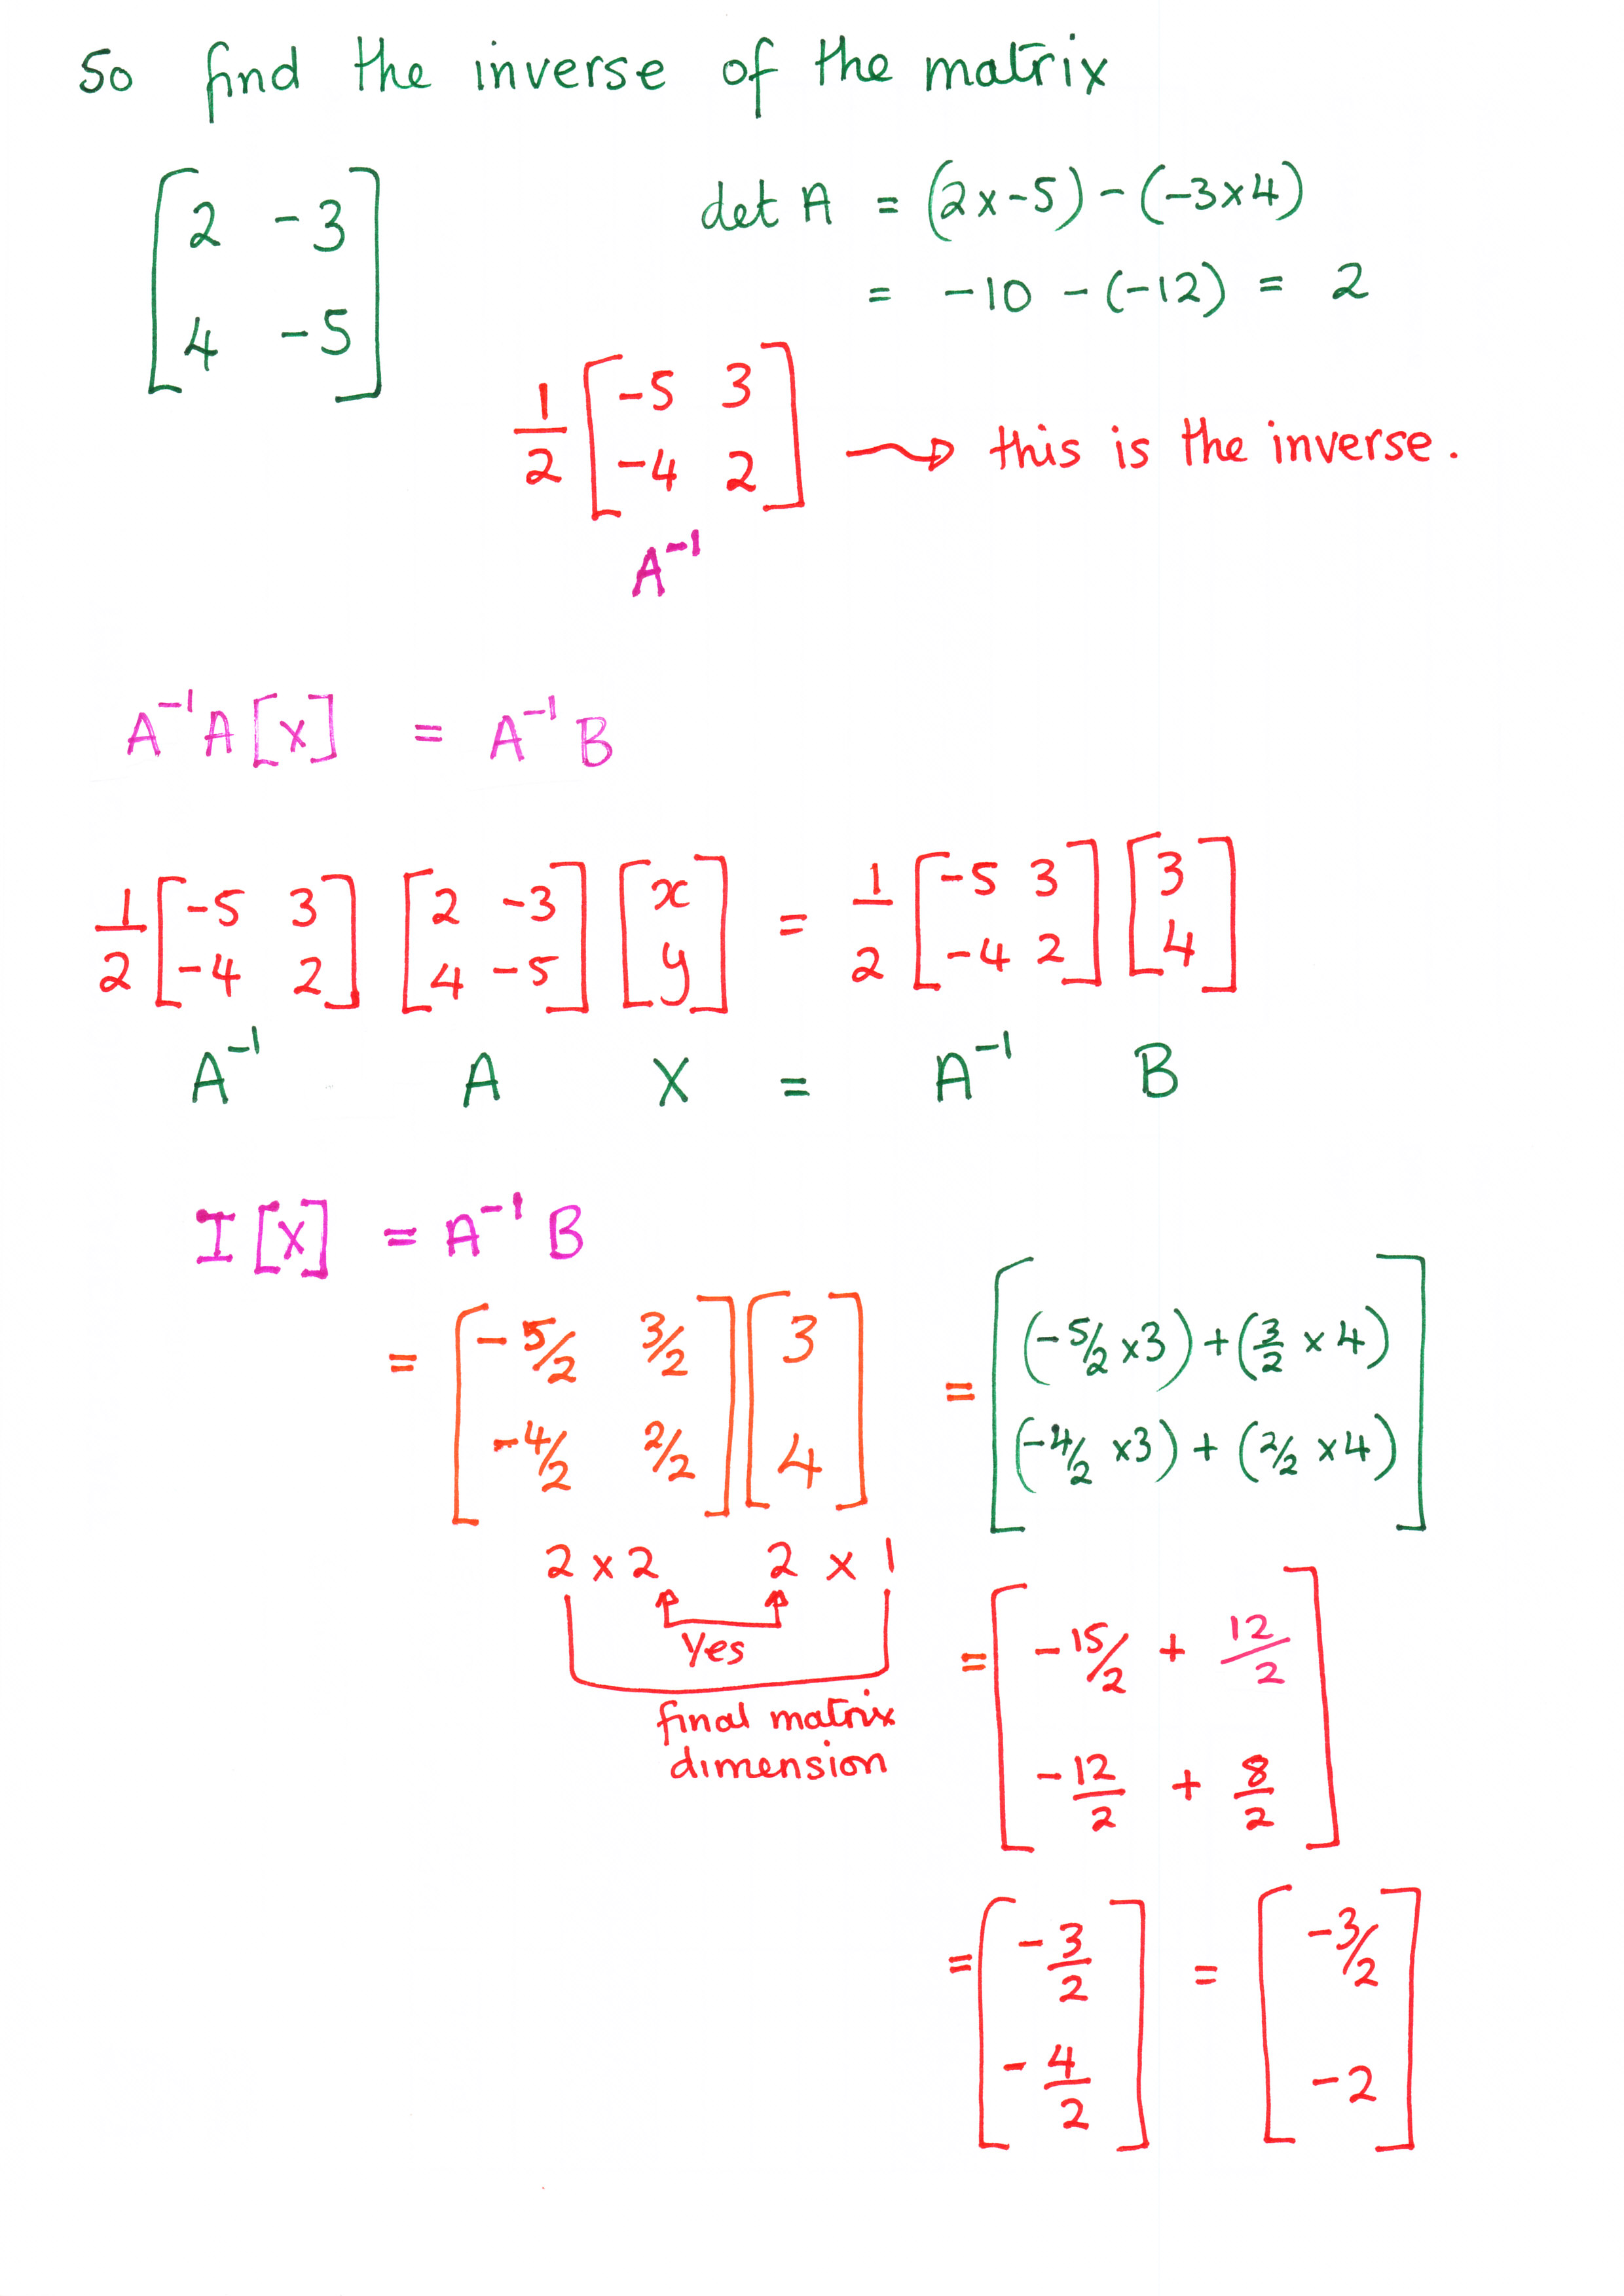 So find the inverse of the matrix
[2 -3
4 -5]
det A = (2x-5) - (-3x4)
= -10 - (-12) = 2
1/2 [-5 3
-4 2] → this is the inverse.
A⁻¹
A⁻¹A[X] = A⁻¹B
1/2 [-5 3
-4 2] [2 -3
4 -5] [x
y] = 1/2 [-5 3
-4 2] [3
4]
A⁻¹ A X = A⁻¹ B
I[X] = A⁻¹B
= [-5/2 3/2
-4/2 2/2] [3
4]
= [(-5/2 x3) + (3/2 x 4)
(-4/2 x3) + (2/2 x4)]
2 x 2 2 x 1
Yes
final matrix
dimension
= [-15/2 + 12/2
-12/2 + 8/2]
= [-3/2
-4/2] = [-3/2
-2]